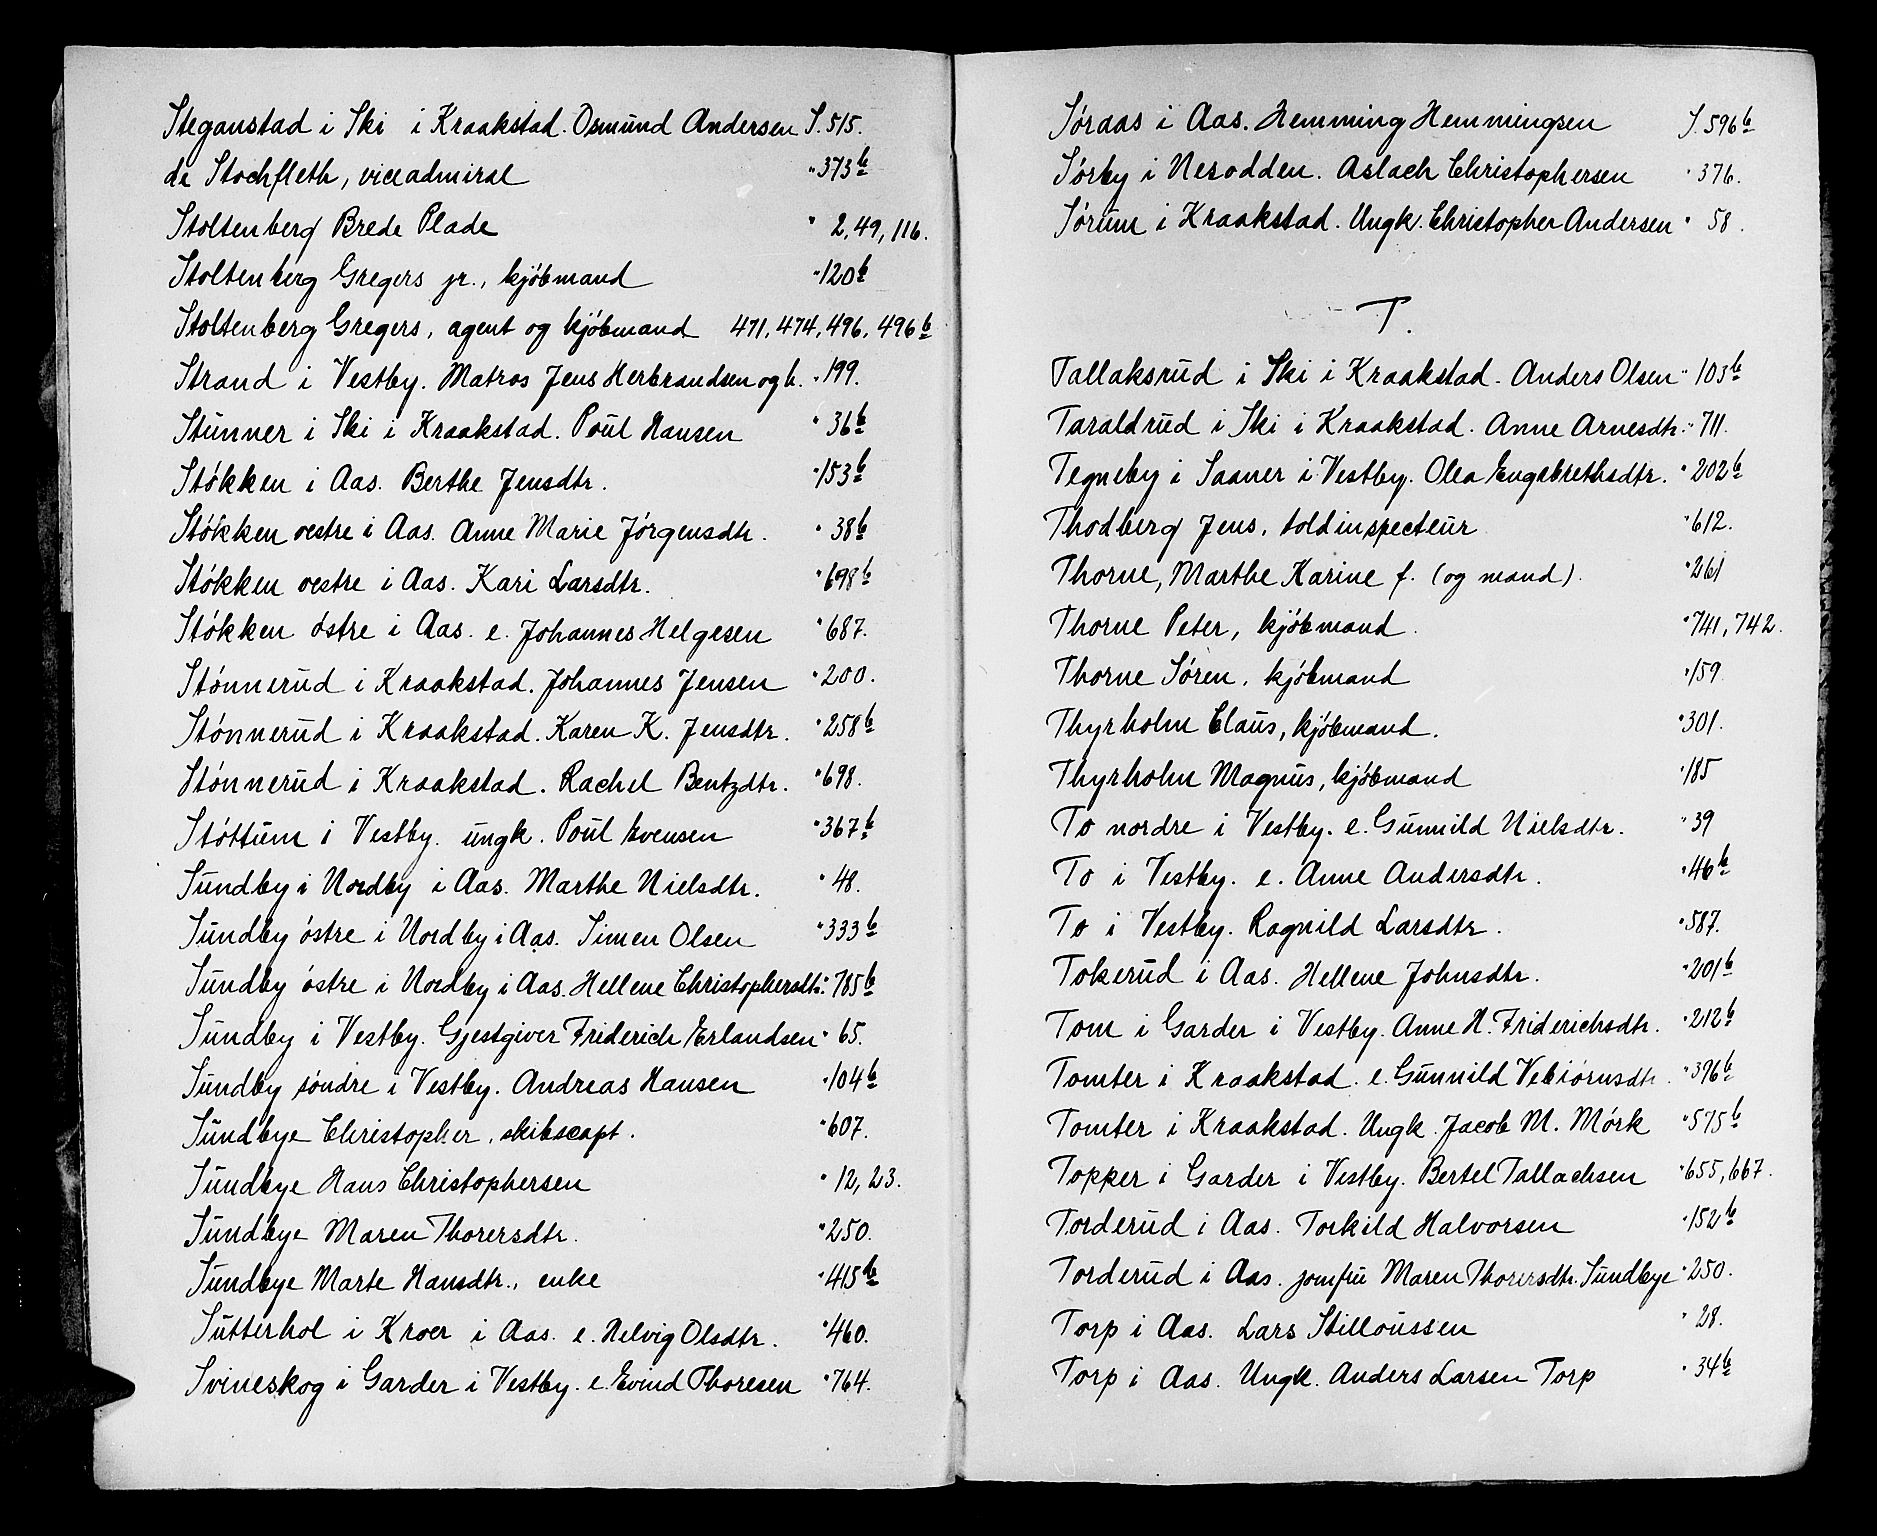 Steganstad i Ski i Kraakstad. Osmund Andersen S. 515.
de Stochfleth, viceadmiral " 373b
Stoltenberg Brede Plade " 2, 49, 116.
Stoltenberg Gregers jr., kjöbmand " 120b
Stoltenberg Gregers, agent og kjöbmand 471, 474, 496, 496b
Strand i Vestby. Matros Jens Herbrandsen og h. " 199.
Stunner i Ski i Kraakstad. Poul Hansen " 36b
Stökken i Aas. Berthe Jensdtr. " 153b
Stökken vestre i Aas. Anne Marie Jörgensdtr. " 38b
Stökken vestre i Aas. Kari Larsdtr. " 698b
Stökken östre i Aas. e. Johannes Helgesen " 687.
Stönnerud i Kraakstad. Johannes Jensen " 200.
Stönnerud i Kraakstad. Karen K. Jensdtr. " 258b
Stönnerud i Kraakstad. Rachel Bentzdtr. " 698.
Stöttum i Vestby. ungk. Poul Evensen " 367b
Sundby i Nordby i Aas. Marthe Nielsdtr. " 48.
Sundby östre i Nordby i Aas. Simen Olsen " 333b
Sundby östre i Nordby i Aas. Hellene Christophersdtr. " 785b
Sundby i Vestby. Gjestgiver Friderich Erlandsen " 65.
Sundby söndre i Vestby. Andreas Hansen " 104b
Sundbye Christopher, skibscapt. " 607.
Sundbye Hans Christophersen " 12, 23.
Sundbye Maren Thorersdtr. " 250.
Sundbye Marte Hansdtr., enke " 415b
Sutterhol i Kroer i Aas. e. Helvig Olsdtr. " 460.
Svineskog i Garder i Vestby. e. Evind Thoresen " 764.
Söraas i Aas. Hemming Hemmingsen S. 596b
Sörby i Nesodden. Aslach Christophersen " 376.
Sörum i Kraakstad. Ungk. Christopher Andersen " 58.
T.
Tallaksrud i Ski i Kraakstad. Anders Olsen " 103b
Taraldrud i Ski i Kraakstad. Anne Arnesdtr. " 711.
Tegneby i Saaner i Vestby. Olea Engebrethsdtr. " 202b
Thodberg Jens, toldinspecteur " 612.
Thorne, Marthe Karine f. (og mand). " 261
Thorne Peter, kjöbmand. " 741, 742.
Thorne Sören, kjöbmand " 159
Thyrholm Claus, kjöbmand. " 301.
Thyrholm Magnus, kjöbmand " 185
To nordre i Vestby. e. Gunnild Nielsdtr. " 39
To i Vestby. e. Anne Andersdtr. " 46b
To i Vestby. Ragnild Larsdtr. " 587.
Tokerud i Aas. Hellene Johnsdtr. " 201b
Tom i Garder i Vestby. Anne H. Friderichsdtr. " 212b
Tomter i Kraakstad. e. Gunnild Vebiörnsdtr. " 396b
Tomter i Kraakstad. Ungk. Jacob M. Mörk " 575b
Topper i Garder i Vestby. Bertel Tallachsen " 655, 667.
Torderud i Aas. Torkild Halvorsen " 152b
Torderud i Aas. jomfru Maren Thorersdtr. Sundbye " 250.
Torp i Aas. Lars Stilloussen " 28.
Torp i Aas. Ungk. Anders Larsen Torp " 34b